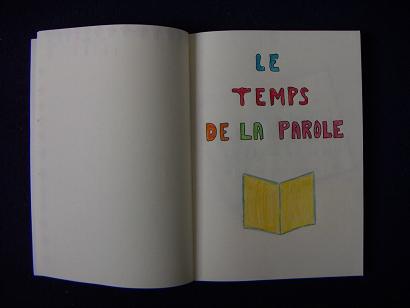 LE
TEMPS
DE LA PAROLE